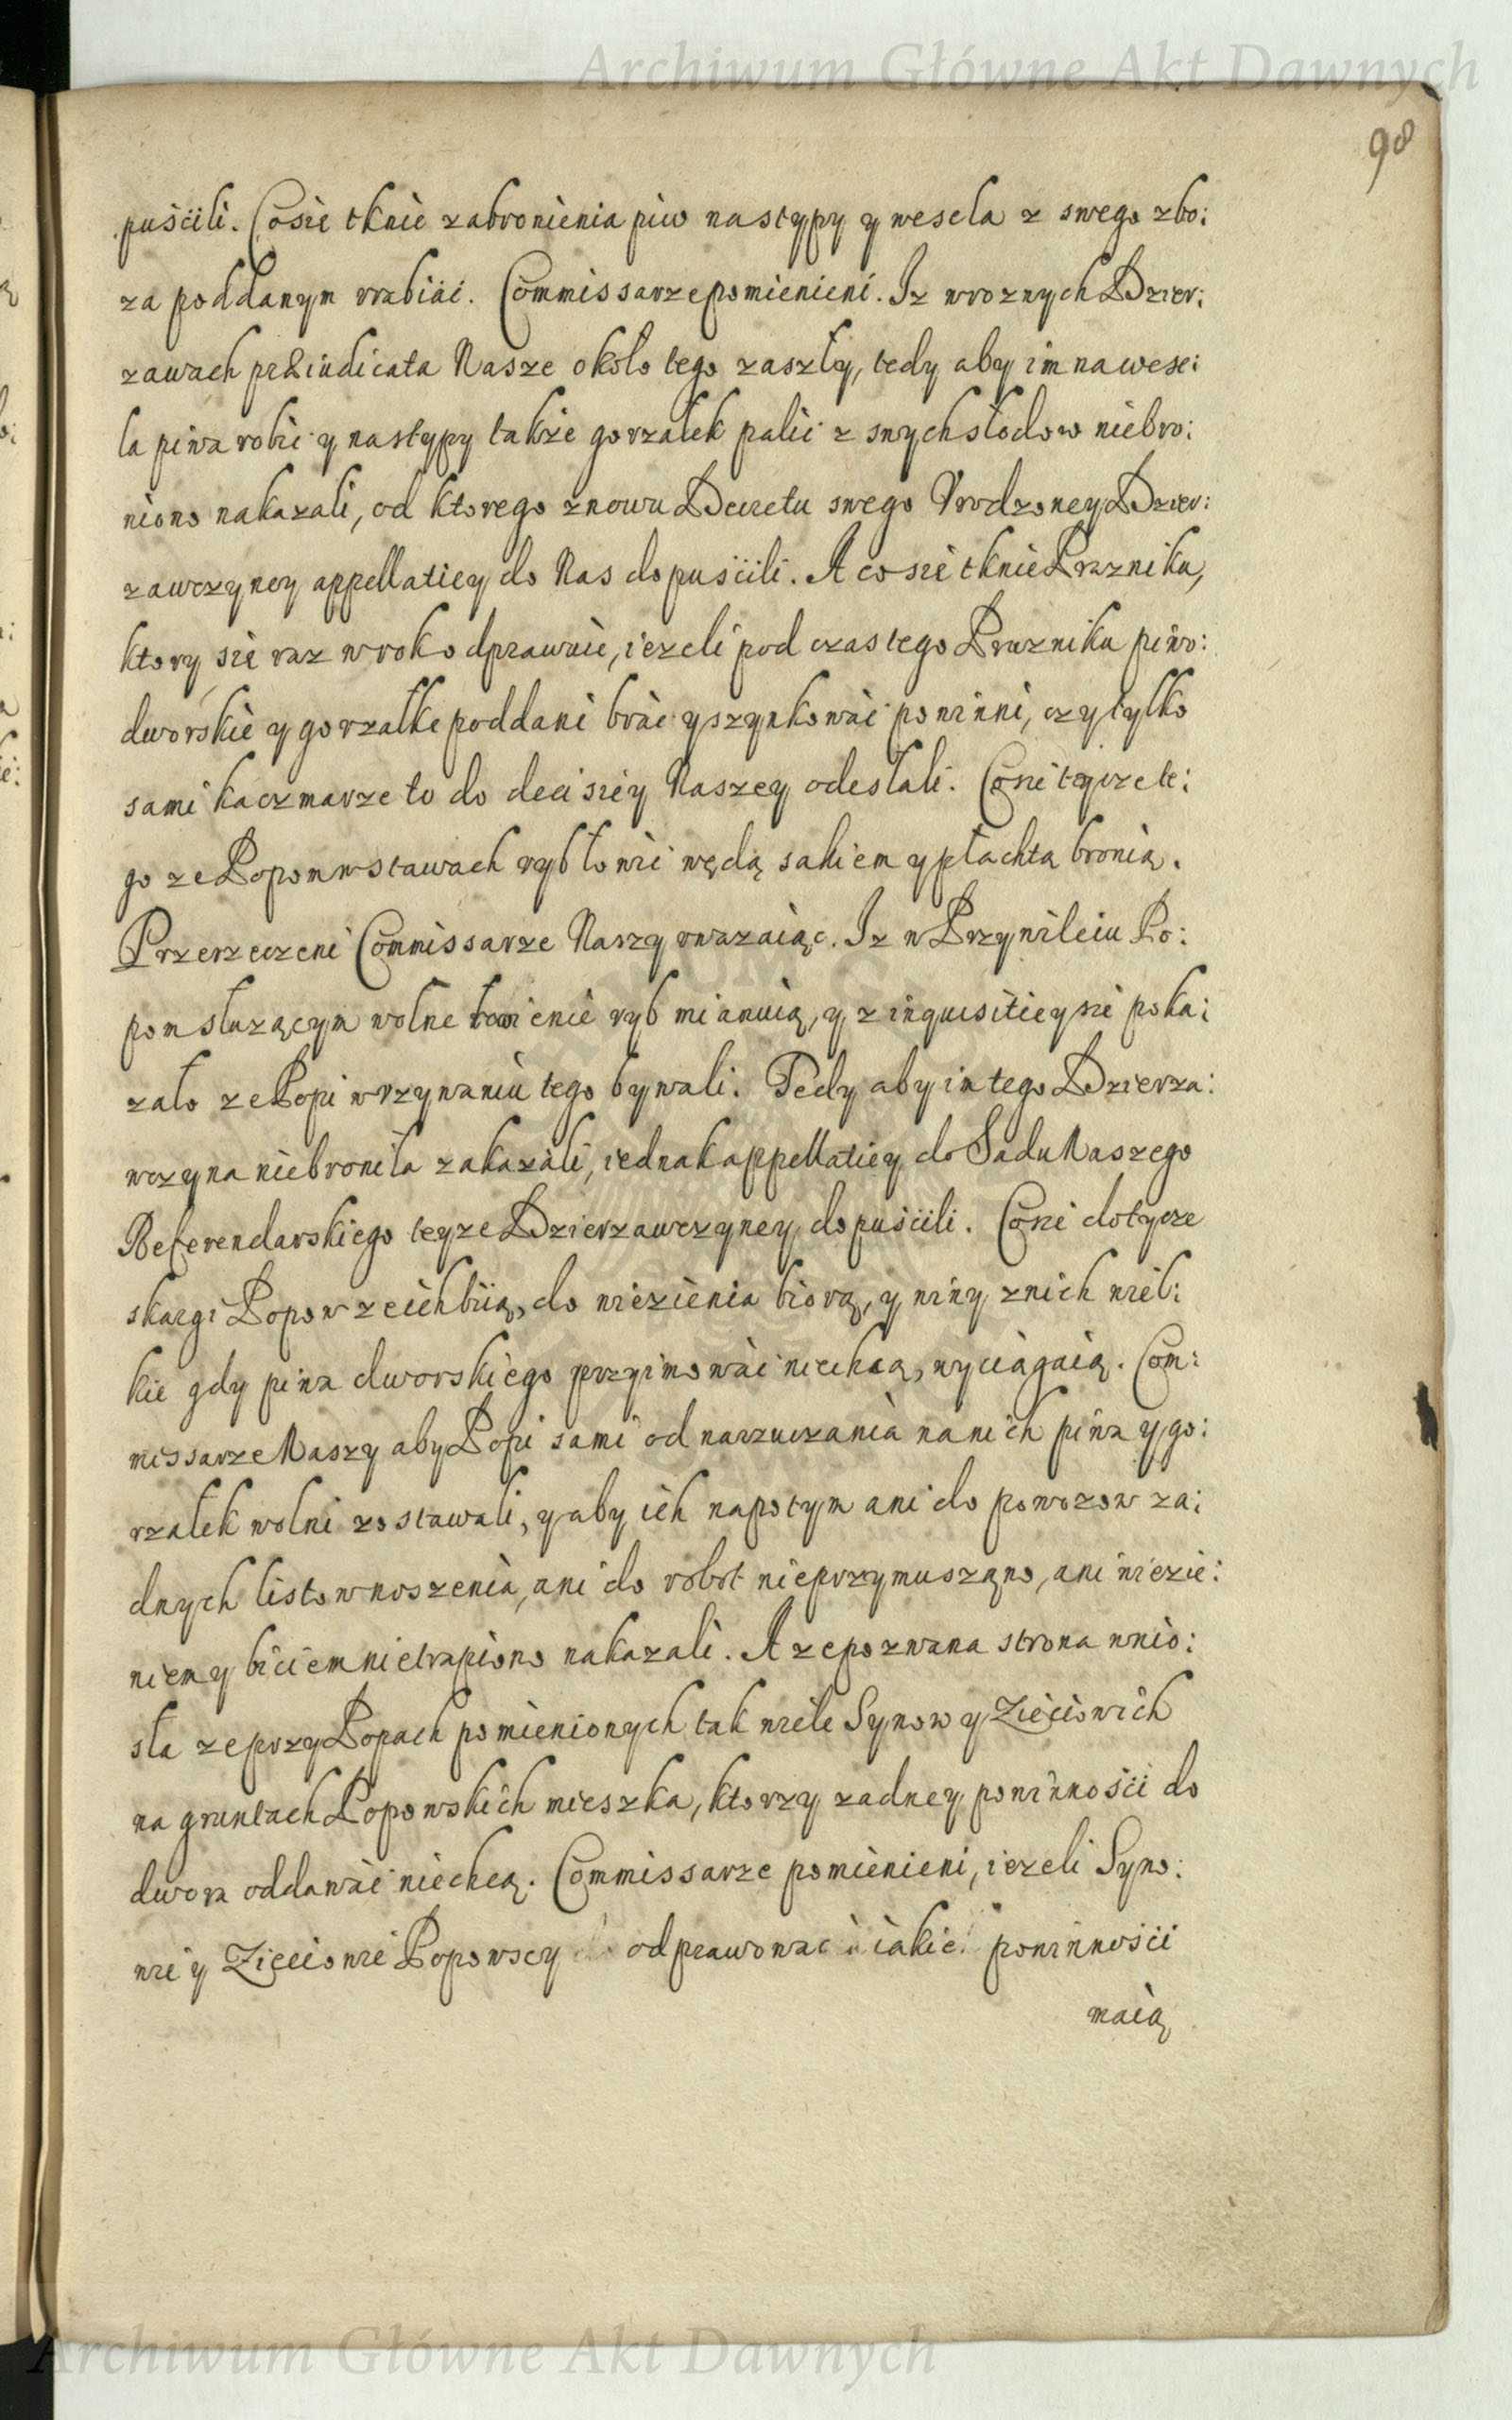 Archiwum Główne Akt Dawnych
98
puścili. Cosie tknie zabronienia piw na stypy y wesela z swego zbo:
za poddanym rrabiać. Commissarze pomienieni. Iz wroznych Dzier:
zawach præiudicata Nasze około tego zaszły, tedy aby im na wese:
la piwa robić y na stypy także gorzałek palić z swych słodow niebro:
niono nakazali, od ktorego znowu Decretu swego Vrodzoney Dzier:
zawczyney appellatiey do Nas dopuścili. A co sie tknie Prazniku,
ktory sie raz w rok odprawuie, iezeli pod czas tego Prazniku piwo:
dworskie y gorzałke poddani brać y szynkować powinni, czy tylko
sami kaczmarze to do decisiey Naszey odesłali. Cosie tycze te:
go ze Popom w stawach ryb łowić wędą sakiem y płachtą bronią.
Przerzeczeni Commissarze Naszy uwazaiąc. Iz w Przywileiu Po:
pom słuzącym wolne łowienie ryb mianuią, y z inquisitiey sie poka:
zało ze Popi w vzywaniu tego bywali. Tedy aby im tego Dzierza:
wczyna niebroniła zakazali, iednak appellatiey do Sadu Naszego
Referendarskiego teyze Dzierzawczyney dopuścili. Cosie dotycze
skargi Popow ze ich biią, do więzienia biorą, y winy z nich wiel:
kie gdy piwa dworskiego przyimować niechcą, wyciągaią. Com:
missarze Naszy aby Popi sami od narzucania na nich piwa y go:
rzałek wolni zostawali, y aby ich napotym ani do powozow za:
dnych listow noszenia, ani do robot nieprzymuszano, ani więzie:
niem y biciem nietrapiono nakazali. A ze pozwana strona wnio:
sła ze przy Popach pomienionych tak wiele Synow y Zięciow ich
na gruntach Popowskich mieszka, ktorzy zadney powinności do
dwora oddawać niechcą. Commissarze pomienieni, iezeli Syno:
wie y Zięciowie Popowscy odprawować iakie powinności
maią
Archiwum Główne Akt Dawnych